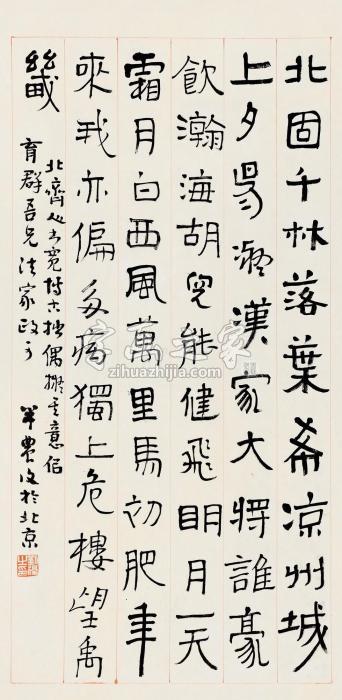 北固千林落葉希涼州城
上夕易凝漢家大將誰豪
飲瀚海胡兒能健飛明月一天
霜月白西風萬里馬初肥年
來我亦偏多病獨上危樓望禹
畿
北齊人書寬博古拙偶擬其意侣
育群吾兄法家政可
半農復於北京
字画之家
zihuazhijia.com